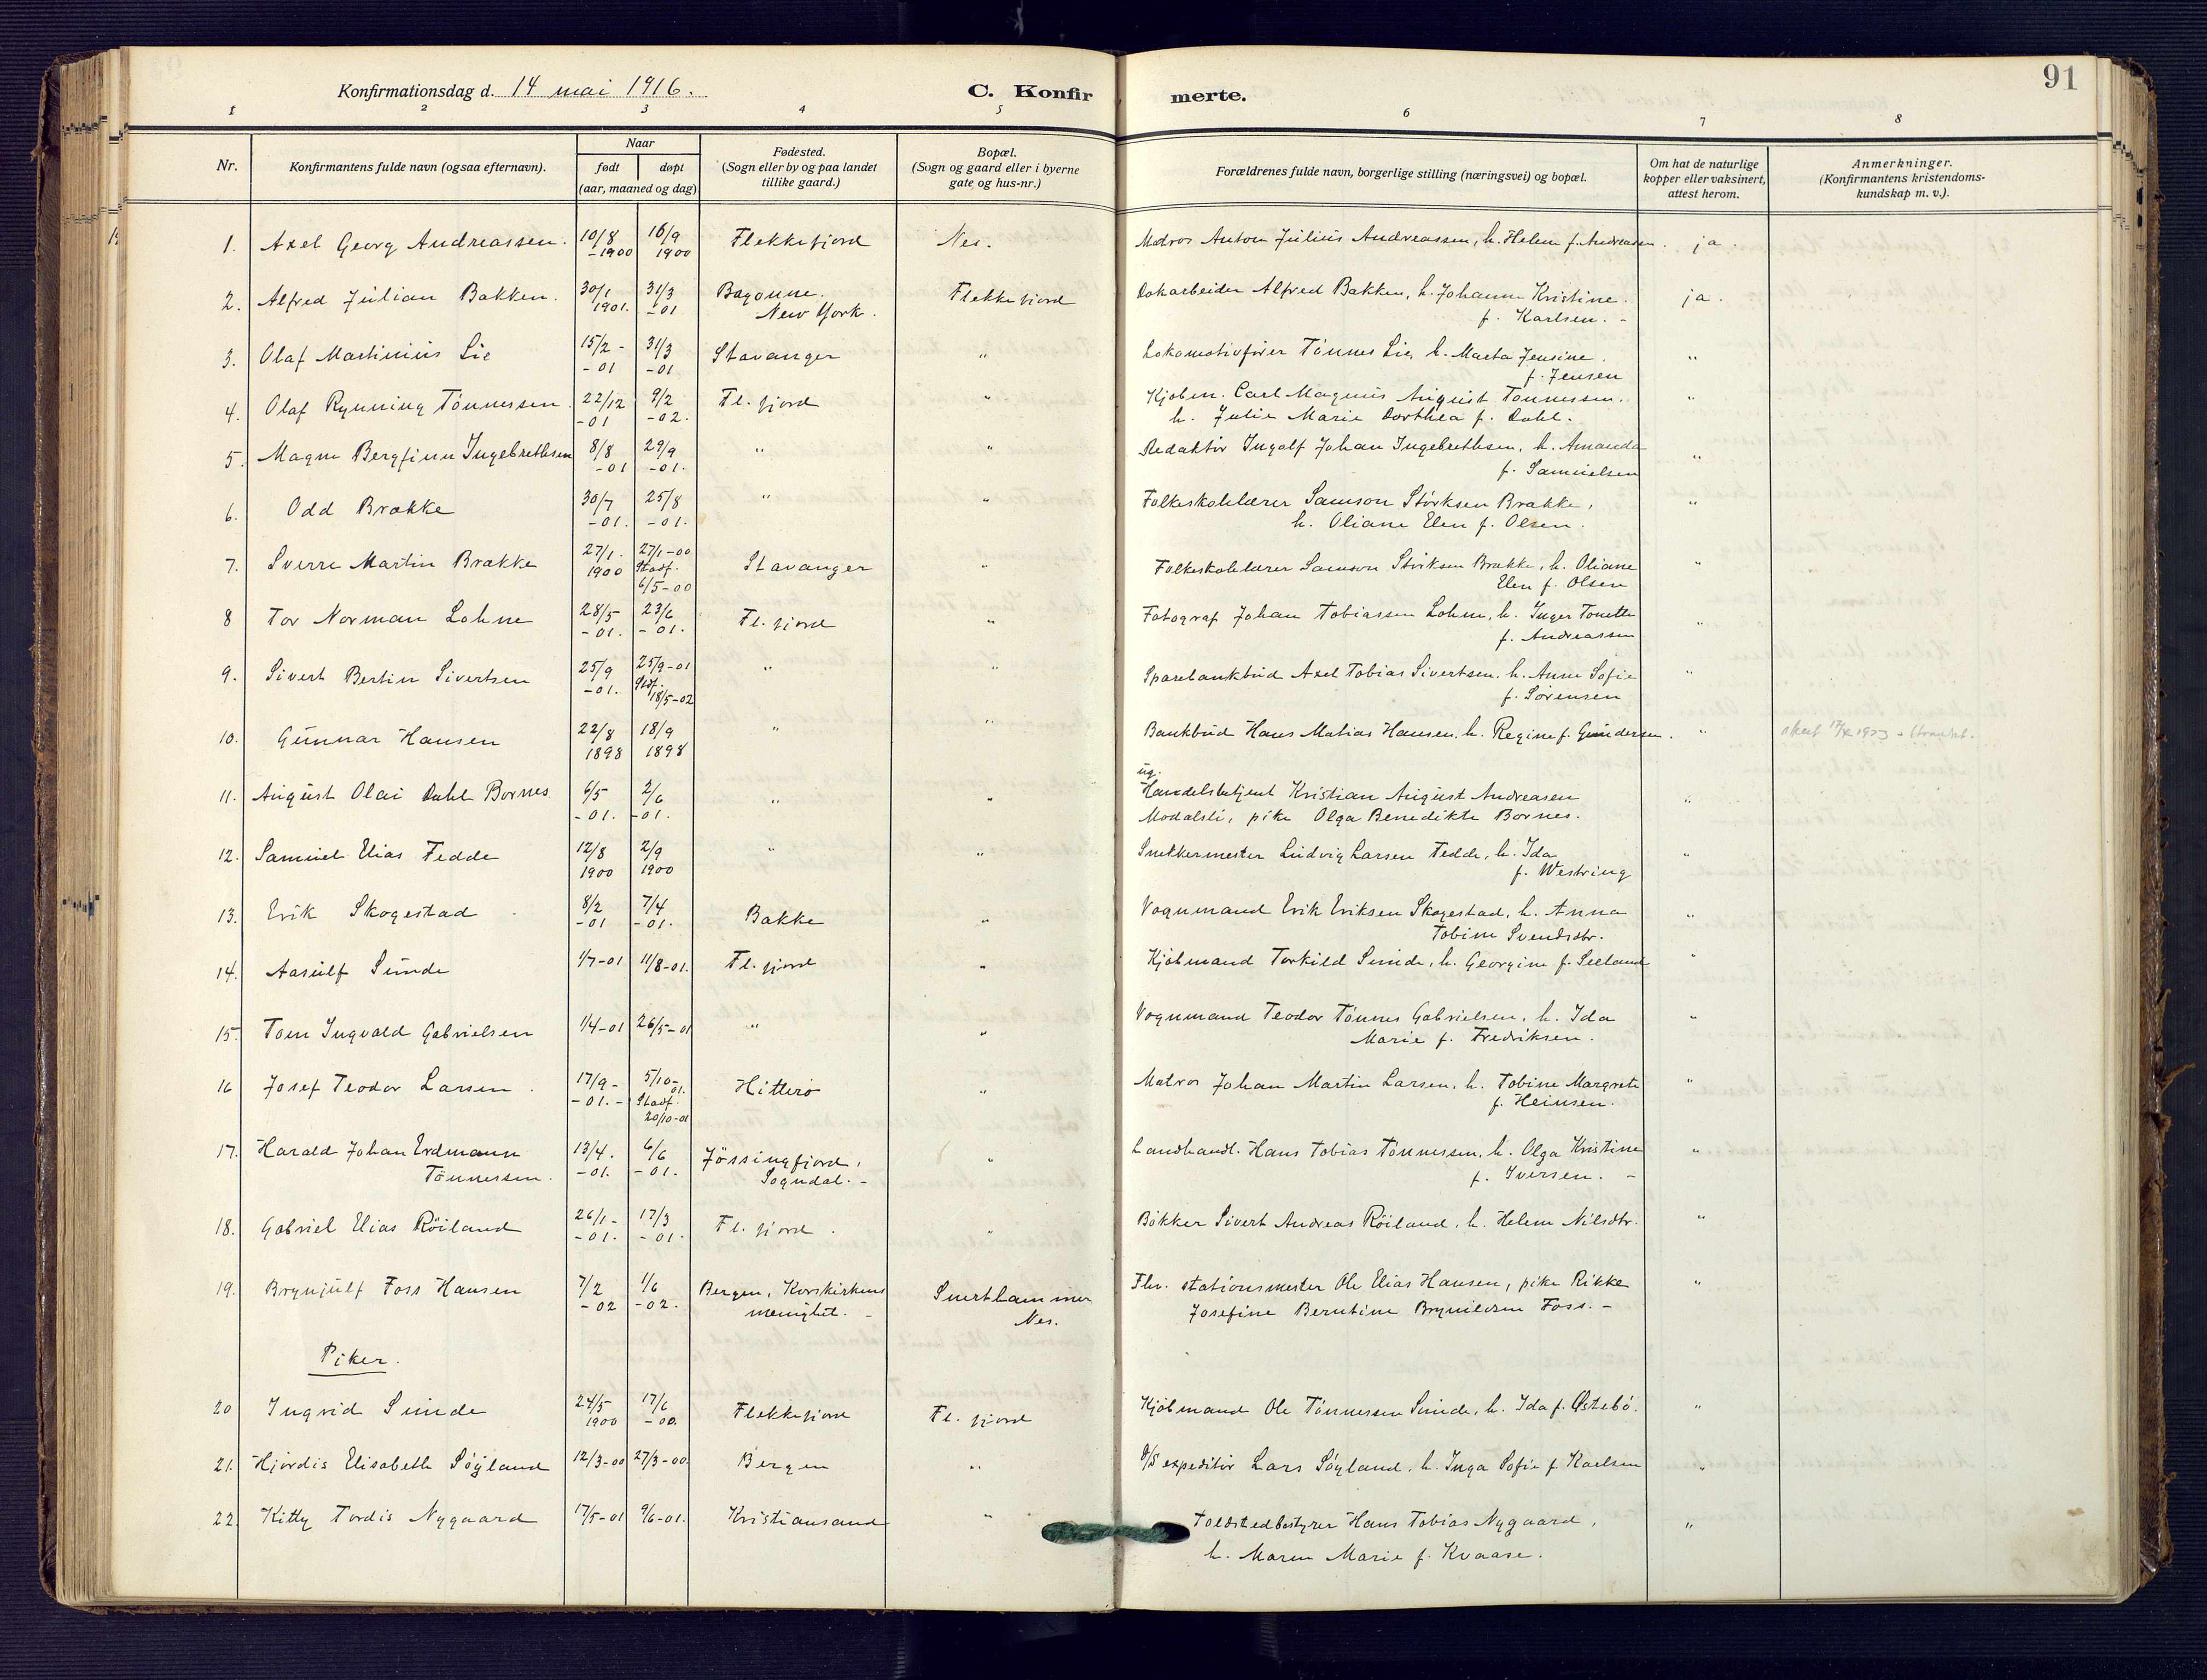 91
Konfirmationsdag d. 14 mai 1916.
C. Konfirmerte.
1 2 3 4 5 6 7 8
Nr.
Konfirmantens fulde navn (ogsaa efternavn).
Naar
født
døpt
(aar, maaned og dag)
Fødested.
(Sogn eller by og paa landet
tillike gaard.)
Bopæl.
(Sogn og gaard eller i byerne
gate og hus-nr.)
Forældrenes fulde navn, borgerlige stilling (næringsvei) og bopæl.
Om hat de naturlige
kopper eller vaksinert,
attest herom.
Anmerkninger.
(Konfirmantens kristendoms-
kundskap m. v.).
1. Axel Georg Andreassen. 10/8 16/9 Flekkefjord Nes. Matros Anton Julius Andreassen, h. Helene f. Andreassen. ja.
-1900 1900
2. Alfred Julian Bakken. 30/1 31/3 Bayonne. Flekkefjord Dokarbeider Alfred Bakken, h. Johanne Kristine. ja.
1901. -01 New York. f. Karlsen. -
3. Olaf Martinius Lie 15/2 - 31/3 Stavanger " Lokomotivfører Tönnes Lie, h. Marta Jensine. "
-01 -01 f. Jensen
4. Olaf Rynning Tönnessen. 22/12 9/2 Fl. fjord " Kjøbm. Carl Magnus August Tönnessen. "
-01 -02. h. Julie Marie Dorthea f. Dahl.
5. Magne Bergfinn Ingebrethsen 8/8 29/9 " " Redaktør Ingolf Johan Ingebrethsen, h. Amanda "
-01 -01. f. Samuelsen
6. Odd Brække 30/7 25/8 " " Folkeskolelærer Samson Størksen Brække, "
-01. -01. h. Oliane Elen f. Olsen.
7. Sverre Martin Brække 27/1. 27/1-00 Stavanger " Folkeskolelærer Samson Störksen Brække, h. Oliane "
1900 Stadf. Elen f. Olsen
6/5-00
8 Tor Norman Lohne 28/5 23/6 Fl. fjord " Fotograf Johan Tobiassen Lohne, h. Inger Tonette "
-01. -01. f. Andreassen
9. Sivert Bertin Sivertsen 25/9 25/9-01 " " Sparebankbud Axel Tobias Sivertsen, h. Anne Sofie "
-01. Stdf. f. Sörensen
18/5-02
10. Gunnar Hansen 22/8 18/9 " " Bankbud Hans Matias Hansen, h. Regine f. Gundersen. "
1898 1898
ug.
11. August Olai Dahl Bornes 6/5 2/6 " " Handelsbetjent Kristian August Andreasen "
-01. -01. Modalsli, pike Olga Benedikte Bornes.
12. Samuel Elias Fedde 12/8 2/9 " " Snekkermester Ludvig Larsen Fedde, h. Ida "
1900 1900 f. Westring
13. Erik Skogestad 8/2 7/4 Bakke " Vognmand Erik Eriksen Skogestad, h. Anna "
-01 -01. Tobine Svendsdtr.
14. Aasulf Sunde 1/7-01 11/8-01. Fl. fjord " Kjøbmand Torkild Sunde, h. Georgine f. Seeland "
15. Tom Ingvald Gabrielsen 1/4-01 26/5-01 " " Vognmand Teodor Tönnes Gabrielsen, h. Ida "
Marie f. Fredriksen.
16 Josef Teodor Larsen. 17/9- 5/10-01. Hitterö " Matros Johan Martin Larsen, h. Tobine Margrete "
-01.- Stadf. f. Heinsen.
20/10-01
17. Harald Johan Erdmann 13/4. 6/6 Jössingfjord, " Landhandl. Hans Tobias Tönnessen, h. Olga Kristine "
Tönnessen. -01. -01. Sogndal. - f. Iversen. -
18. Gabriel Elias Röiland 26/1- 17/3 Fl. fjord. " Bökker Sivert Andreas Röiland, h. Helene Nilsdtr. "
-01. -01.
19. Brynjulf Foss Hansen 7/2 1/6 Bergen, Korskirkens Snerthammer Fhv. stationsmester Ole Elias Hansen, pike Rikke "
-02 -02. menighet. - Nes. Josefine Berntine Brynildsen Foss. -
Piker.
20 Ingrid Sunde 24/5 17/6 Flekkefjord Fl. fjord Kjøbmand Ole Tönnessen Sunde, h. Ida f. Østebö. "
1900 -00.
21. Hjördis Elisabeth Söyland 12/3-00 27/3-00. Bergen " D/S expeditör Lars Söyland, h. Inga Sofie f. Karlsen "
22. Kitty Tordis Nygaard 17/5-01 9/6-01. Kristiansand " Toldstedbestyrer Hans Tobias Nygaard, "
h. Maren Marie f. Kvaase.